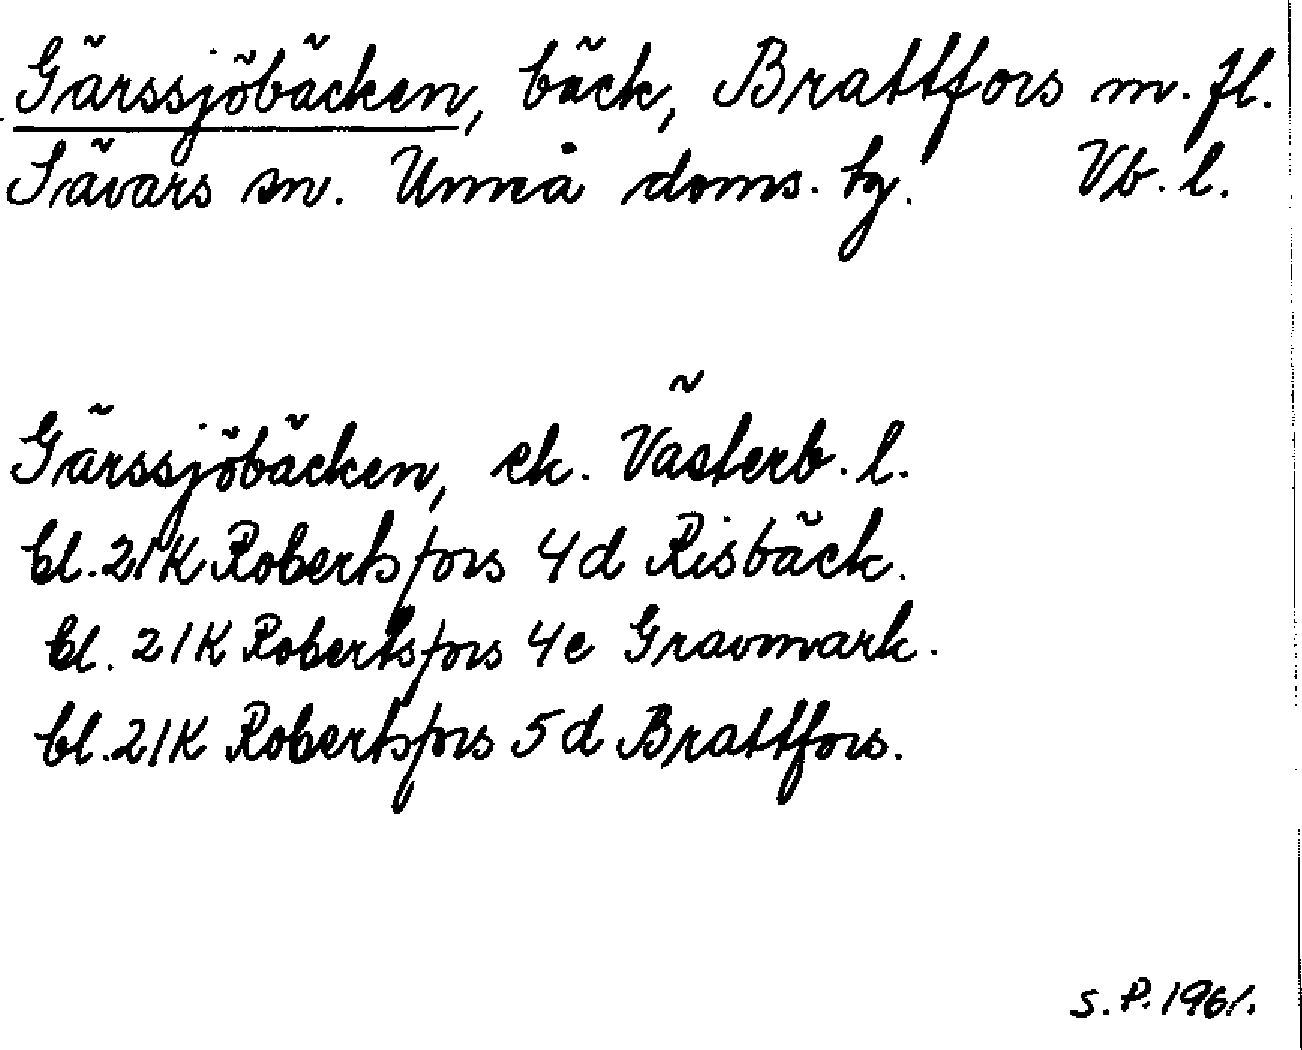 Gärssjöbäcken, bäck, Brattfors m. fl.
Sävars sn. Umeå doms. hg. Vb. l.
Gärssjöbäcken, ek. Västerb. l.
bl. 21K Robertsfors 4d Risbäck.
bl. 21K Robertsfors 4e Gravmark.
bl. 21K Robertsfors 5d Brattfors.
S. P. 1961.